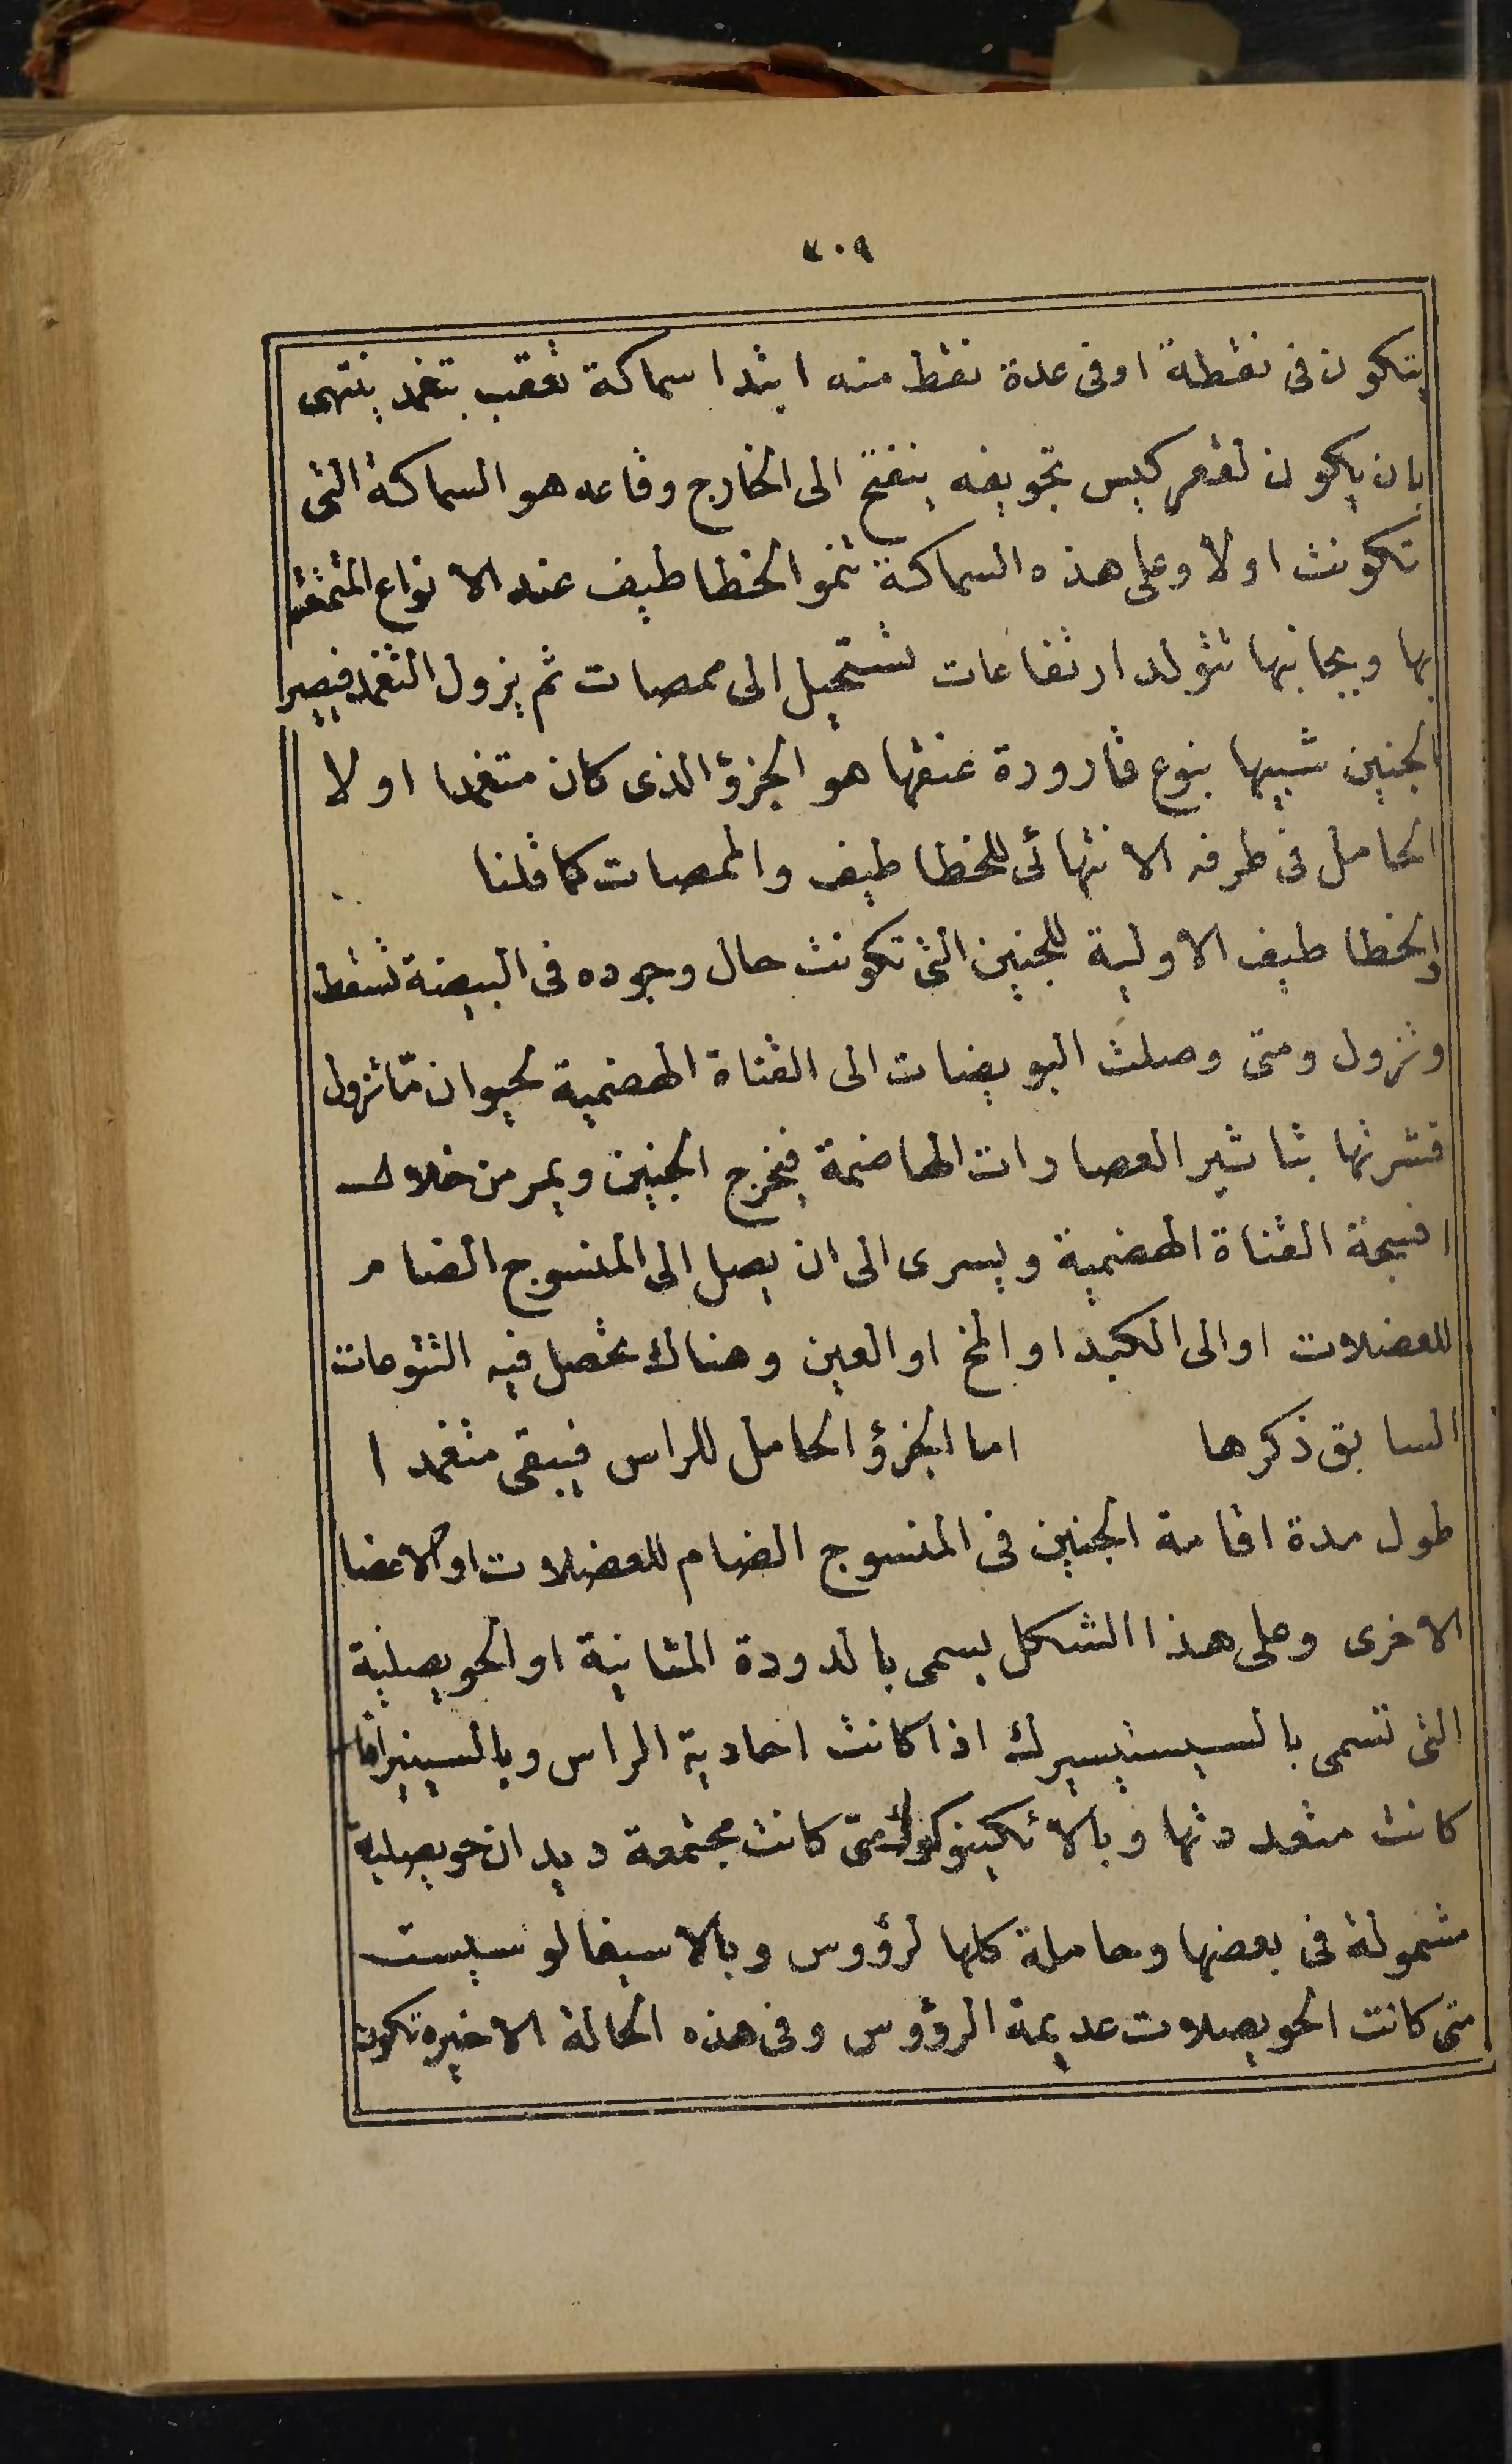 ٧٠٩
يتكون فى نقطة او فى عدة نقط منه ابتدا سماكة تعقب بتغمد ينتهى
بان يكون لقعر كيس تجويفه ينفتح الى الخارج وقاعه هو السماكة التى
تكونت اولا وعلى هذه السماكة تنمو الخطاطيف عند الانواع المتمتعة
بها وبجانبها تتولد ارتفاعات تستحيل الى ممصات ثم يزول التغمد فيصير
الجنين شبيها بنوع قارورة عنقها هو الجزؤ الذى كان متغمدا اولا
الحامل فى طرفه الانتهائى للخطاطيف والممصات كما قلنا
والخطاطيف الاولية للجنين التى تكونت حال وجوده فى البيضة تسقط
وتزول ومتى وصلت البويضات الى القناة الهضمية لحيوان ما تزول
قشرتها بتاثير العصارات الهاضمة فيخرج الجنين ويمر من خلال
انسجة القناة الهضمية ويسرى الى ان يصل الى المنسوج الضام
للعضلات او الى الكبد او المخ او العين وهناك تحصل فيه التنوعات
السابق ذكرها اما الجزؤ الحامل للراس فيبقى متغمدا
طول مدة اقامة الجنين فى المنسوج الضام للعضلات او الاعضا
الاخرى وعلى هذا الشكل يسمى بالدودة المثانية او الحويصلية
التى تسمى بالسيستيسيرك اذا كانت احادية الراس وبالسينير اذا
كانت متعددتها وبالائكينوكوك متى كانت مجتمعة ديدان حويصلية
مشمولة فى بعضها وحاملة كلها لرؤوس وبالاسيفالوسيست
متى كانت الحويصلات عديمة الرؤوس وفى هذه الحالة الاخيره تكون